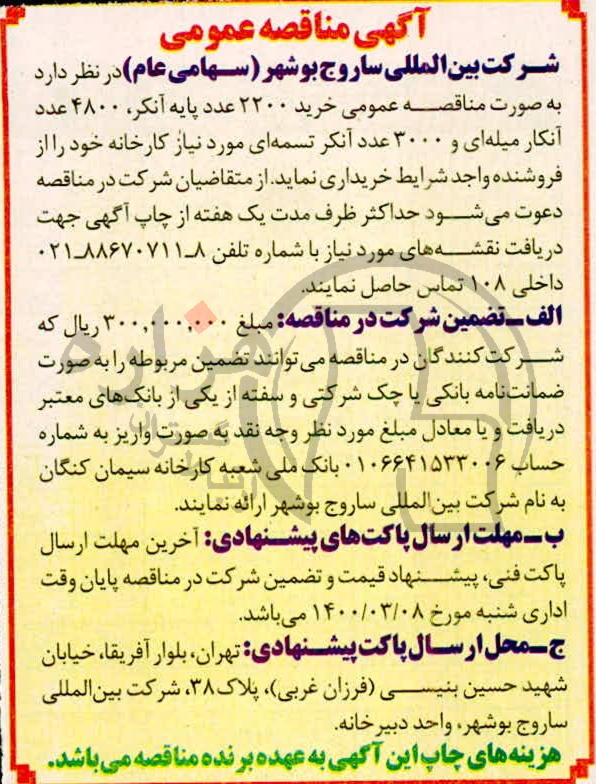 آگهی مناقصه عمومی
شرکت بین‌المللی ساروج بوشهر (سهامی عام) در نظر دارد
به صورت مناقصه عمومی خرید ۲۲۰۰ عدد پایه آنکر، ۴۸۰۰ عدد
آنکار میله‌ای و ۳۰۰۰ عدد آنکر تسمه‌ای مورد نیاز کارخانه خود را از
فروشنده واجد شرایط خریداری نماید. از متقاضیان شرکت در مناقصه
دعوت می‌شود حداکثر ظرف مدت یک هفته از چاپ آگهی جهت
دریافت نقشه‌های مورد نیاز با شماره تلفن ۸ـ۸۸۶۷۰۷۱۱ـ۰۲۱
داخلی ۱۰۸ تماس حاصل نمایند.
الف ـ تضمین شرکت در مناقصه: مبلغ ۳۰۰,۰۰۰,۰۰۰ ریال که
شرکت‌کنندگان در مناقصه می‌توانند تضمین مربوطه را به صورت
ضمانت‌نامه بانکی یا چک شرکتی و سفته از یکی از بانک‌های معتبر
دریافت و یا معادل مبلغ مورد نظر وجه نقد به صورت واریز به شماره
حساب ۰۱۰۶۶۴۱۵۳۳۰۰۶ بانک ملی شعبه کارخانه سیمان کنگان
به نام شرکت بین‌المللی ساروج بوشهر ارائه نمایند.
ب ـ مهلت ارسال پاکت‌های پیشنهادی: آخرین مهلت ارسال
پاکت فنی، پیشنهاد قیمت و تضمین شرکت در مناقصه پایان وقت
اداری شنبه مورخ ۱۴۰۰/۰۳/۰۸ می‌باشد.
ج ـ محل ارسال پاکت پیشنهادی: تهران، بلوار آفریقا، خیابان
شهید حسین بنیسی (فرزان غربی)، پلاک ۳۸، شرکت بین‌المللی
ساروج بوشهر، واحد دبیرخانه.
هزینه‌های چاپ این آگهی به عهده برنده مناقصه می‌باشد.
هزاره